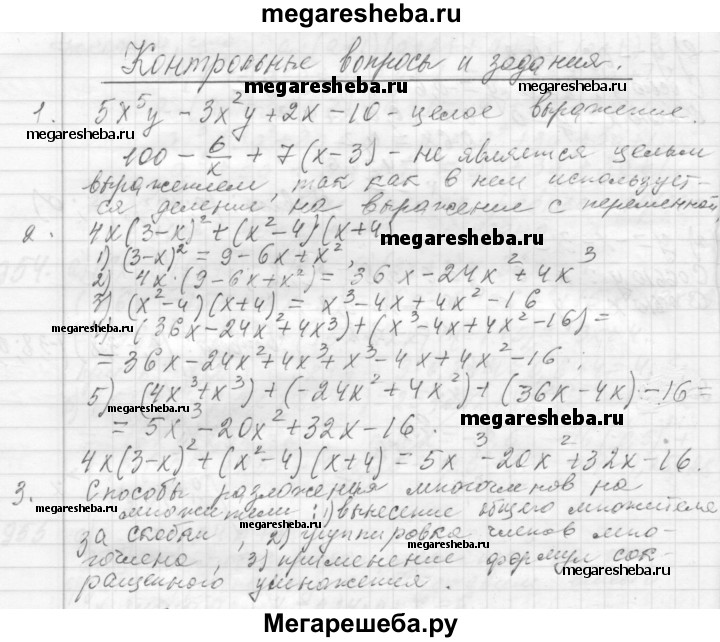 megaresheba.ru
Контрольные вопросы и задания.
megaresheba.ru
megaresheba.ru
1. 5x⁵y - 3x²y + 2x - 10 - целое выражение.
megaresheba.ru
100 - 6/x + 7(x-3) - не является целым
выражением, так как в нем использует-
megaresheba.ru
ся деление на выражение с переменной
2. 4x(3-x)² + (x²-4)(x+4)
megaresheba.ru
1) (3-x)² = 9 - 6x + x²,
2) 4x·(9-6x+x²) = 36x - 24x² + 4x³
3) (x²-4)(x+4) = x³ - 4x + 4x² - 16
megaresheba.ru
4) (36x-24x²+4x³) + (x³-4x+4x²-16) =
= 36x - 24x² + 4x³ + x³ - 4x + 4x² - 16;
5) (4x³+x³) + (-24x²+4x²) + (36x-4x) - 16 =
megaresheba.ru
megaresheba.ru
= 5x³ - 20x² + 32x - 16.
4x(3-x)² + (x²-4)(x+4) = 5x³ - 20x² + 32x - 16.
3. Способы разложения многочленов на
megaresheba.ru
множители: 1) вынесение общего множителя
за скобки, 2) группировка членов мно-
megaresheba.ru
гочлена, 3) применение формул сок-
megaresheba.ru
ращенного умножения.
Мегарешеба.ру